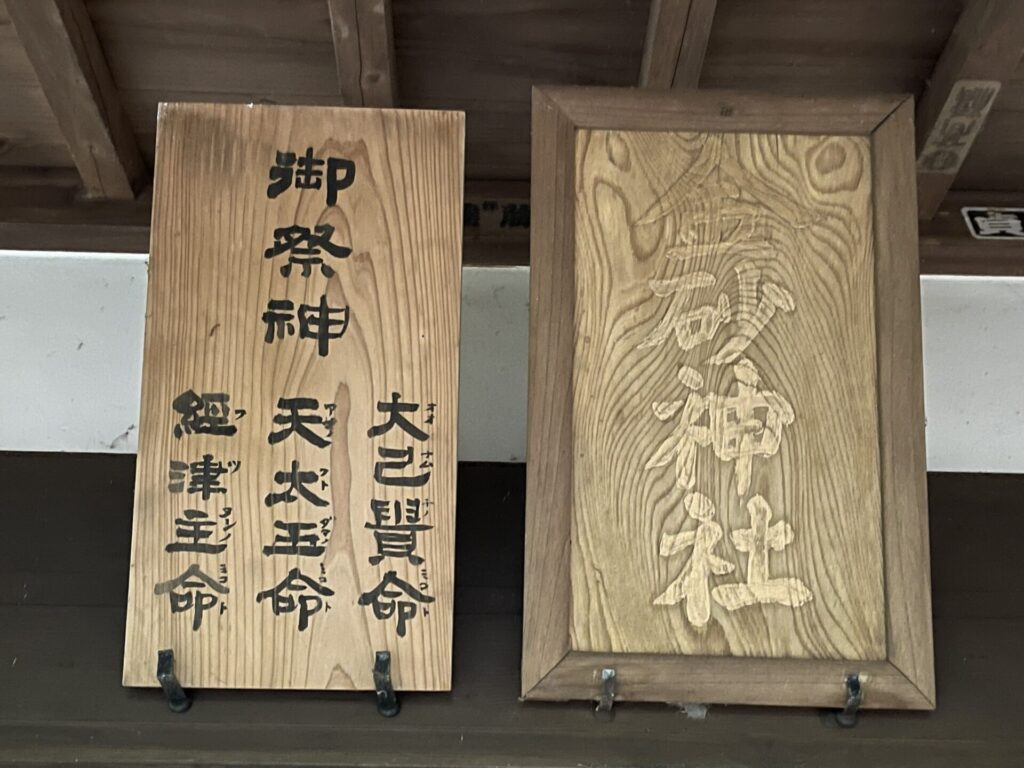 金砂神社
御祭神
大己貴命
オオナムチノミコト
天太玉命
アメノフトダマノミコト
經津主命
フツヌシノミコト